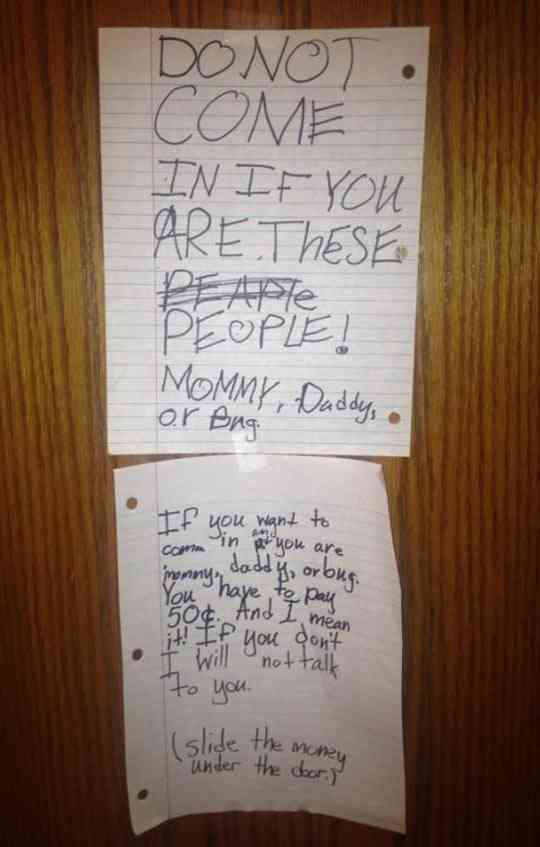 DO NOT
COME
IN IF YOU
ARE THESE
PEAPle
PEOPLE!
MOMMY, Daddy,
or Bug.
If you want to
comm in and you are
mommy, daddy, or bug.
You have to pay
50¢. And I mean
it! If you don't
I will not talk
to you.
(slide the money
under the door.)